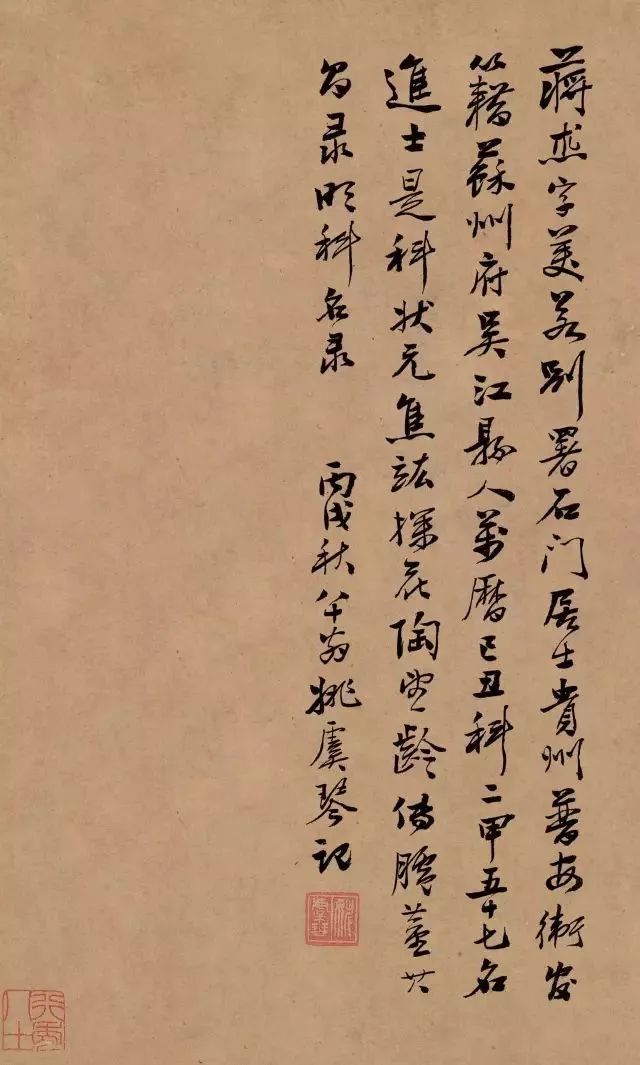 蔣杰字美若別署石门居士貴州普安衛
籍蘇州府吳江縣人萬曆己丑科二甲五十七名
進士是科狀元焦竑探花陶望齡傳臚董其
昌录明科名录 丙戌秋八十翁姚虞琴記